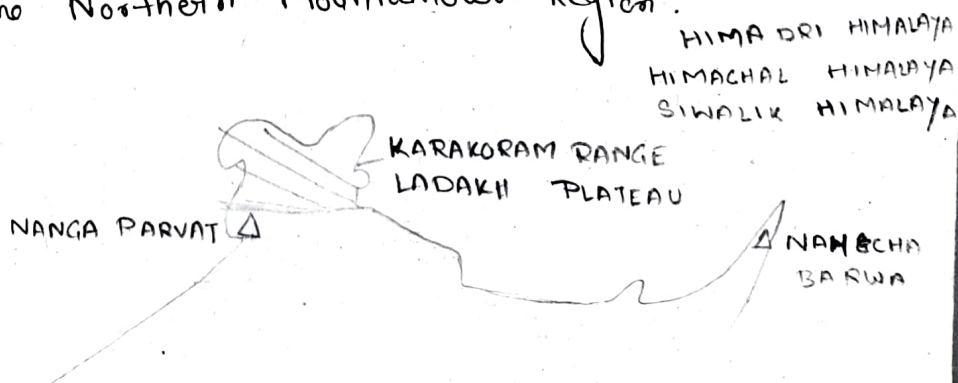 Northern Mountainous Region.
HIMADRI HIMALAYA
HIMACHAL HIMALAYA
SIWALIK HIMALAYA
KARAKORAM RANGE
LADAKH PLATEAU
NANGA PARVAT
NAMCHA
BARWA